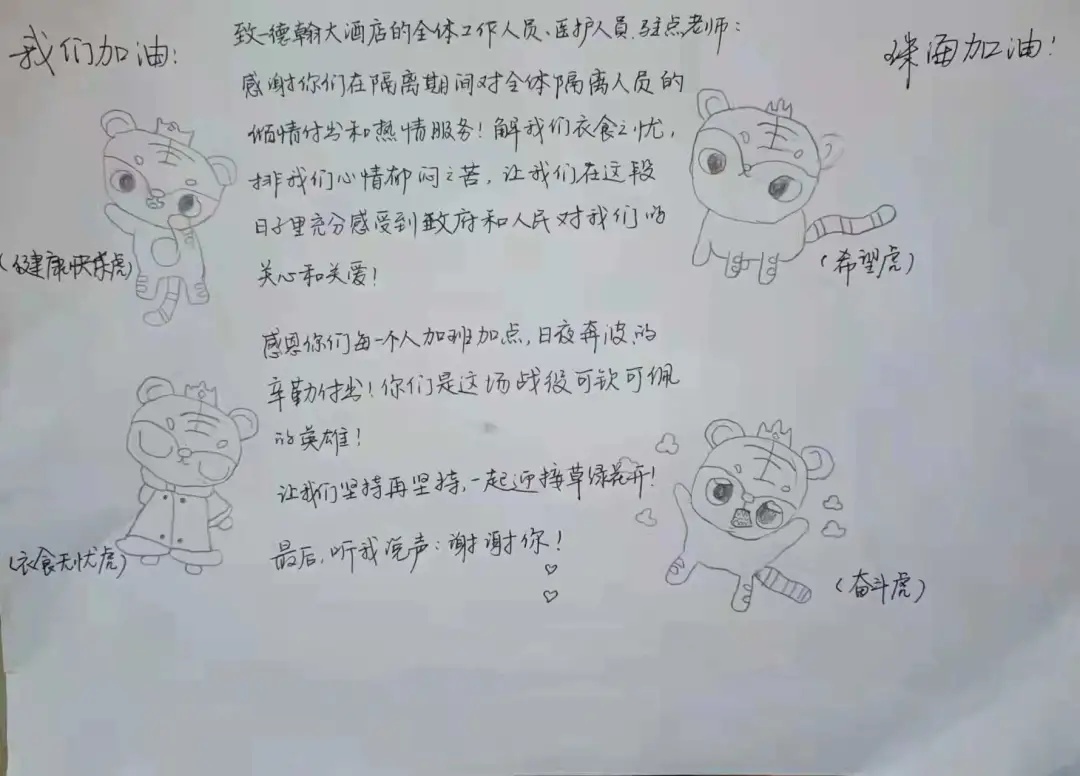 我们加油!
珠海加油!
致一德翰大酒店的全体工作人员、医护人员、驻点老师:
感谢你们在隔离期间对全体隔离人员的
倾情付出和热情服务!解我们衣食之忧,
排我们心情郁闷之苦,让我们在这段
日子里充分感受到政府和人民对我们的
关心和关爱!
(健康快乐虎)
(希望虎)
感恩你们每一个人加班加点,日夜奔波的
辛勤付出!你们是这场战役可钦可佩
的英雄!
让我们坚持再坚持,一起迎接草绿花开!
最后,听我说声:谢谢你!
(衣食无忧虎)
(奋斗虎)
王
王
王
王